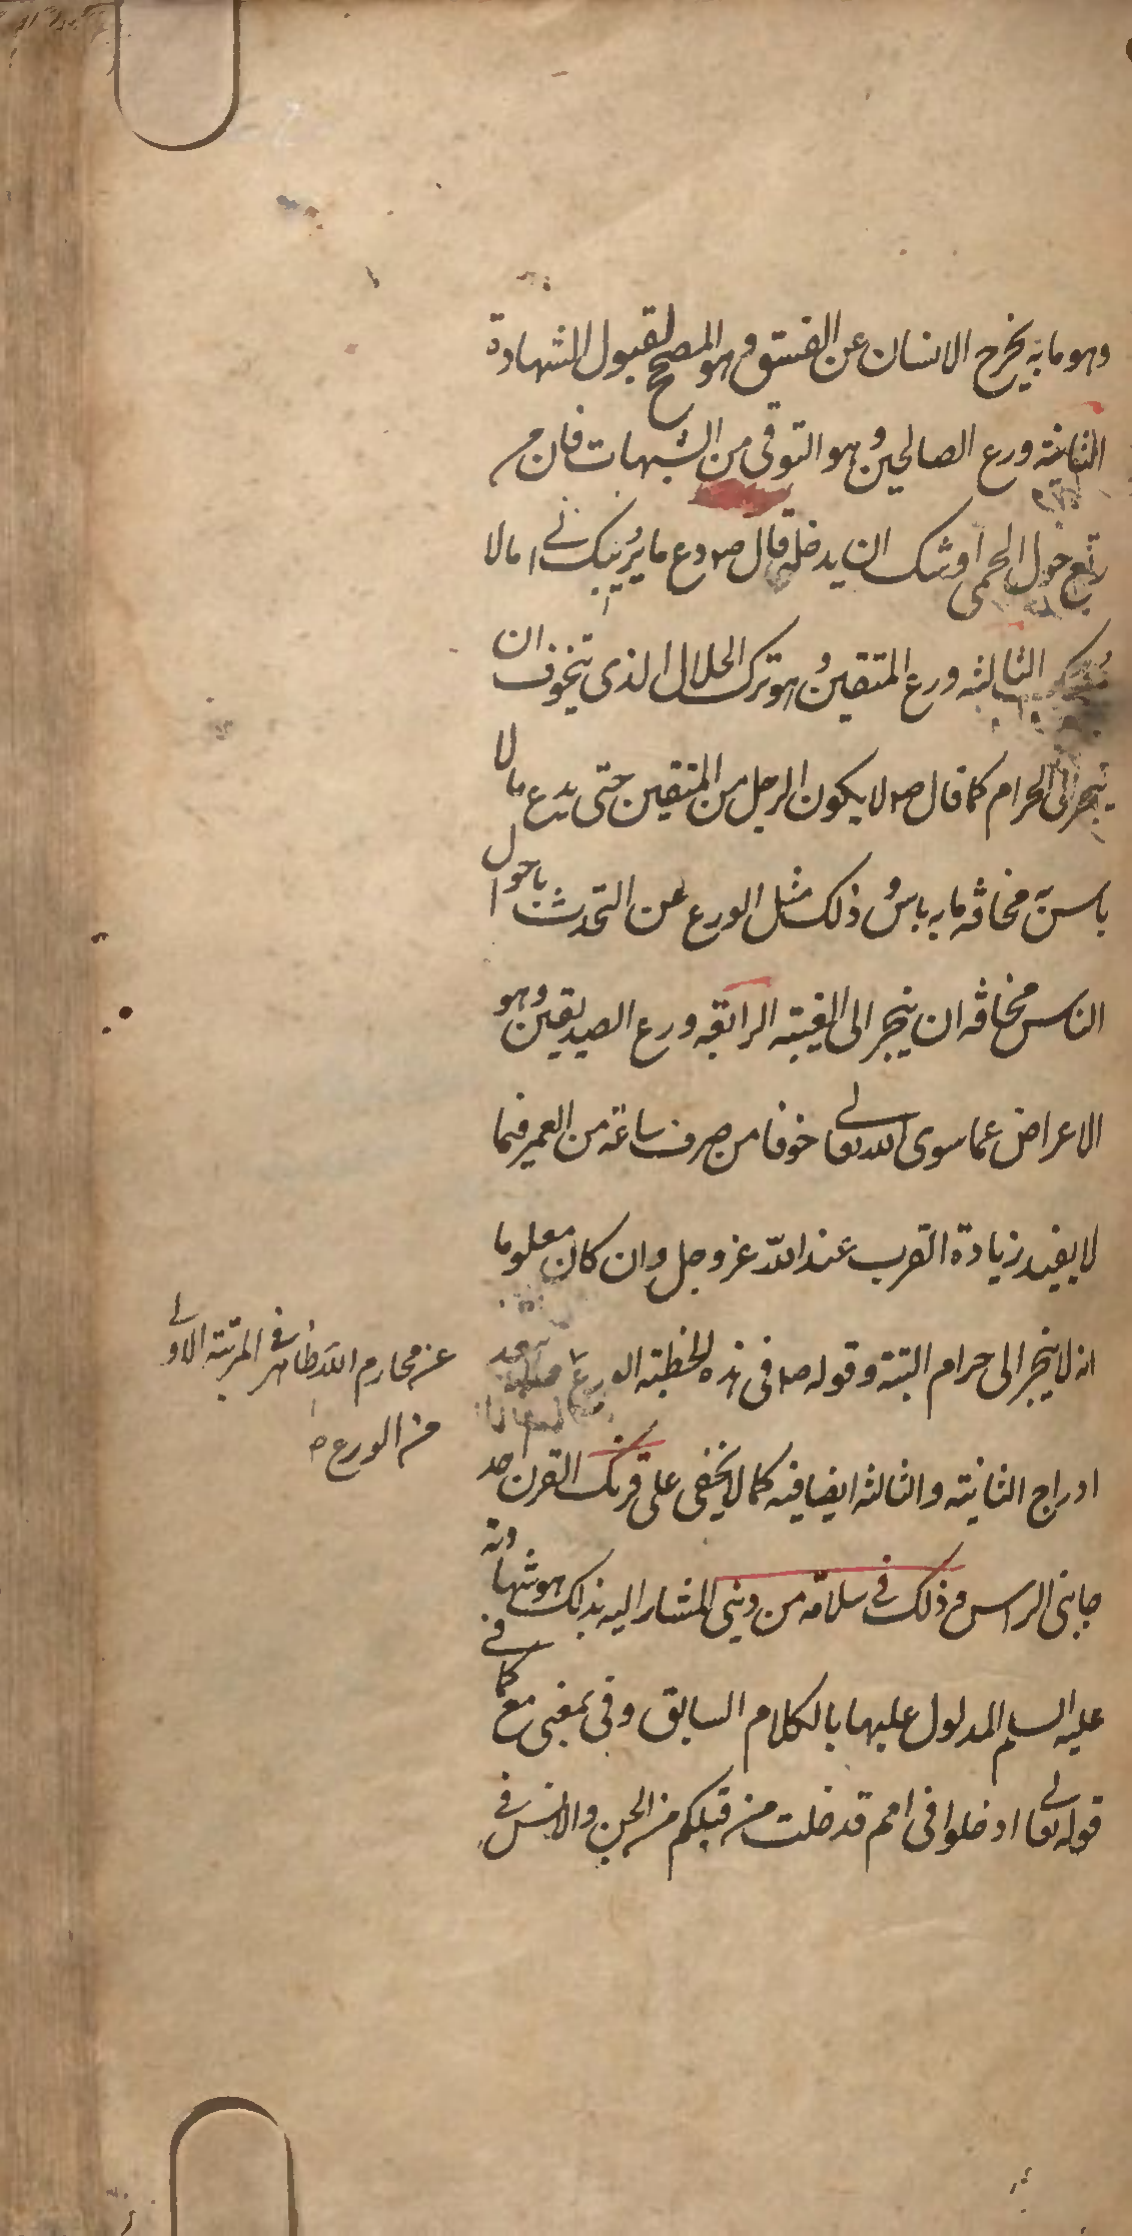 وهو ما به يخرج الانسان عن الفسق وهو المصحح لقبول الشهادة
الثانية ورع الصالحين وهو التوقى من الشبهات فان من
رتع حول الحمى اوشك ان يدخله قال ص دع ما يريبك الى ما لا
يريبك الثالثة ورع المتقين وهو ترك الحلال الذى يتخوف ان
ينجر الى الحرام كما قال ص لا يكون الرجل من المتقين حتى يدع ما لا
باس به مخافة ما به باس وذلك مثل الورع عن التحدث باحوال
الناس مخافة ان ينجر الى الغيبة الرابعة ورع الصديقين وهو
الاعراض عما سوى الله تعالى خوفا من صرف ساعة من العمر فيما
لا يفيد زيادة القرب عند الله عز وجل وان كان معلوما
انه لا ينجر الى حرام البتة وقوله ص فى هذه الخطبة الورع
عن محارم الله ظاهر فى المرتبة الاولى
من الورع
ادراج الثانية والثالثة ايضا فيه كما لا يخفى على قرنك القرن احد
جانبى الراس وذلك فى سلامة من دينى المشار اليه بذلك هو شهادته
عليه السلم المدلول عليها بالكلام السابق وفى بمعنى مع كما فى
قوله تعالى ادخلوا فى امم قد خلت من قبلكم من الجن والانس فى